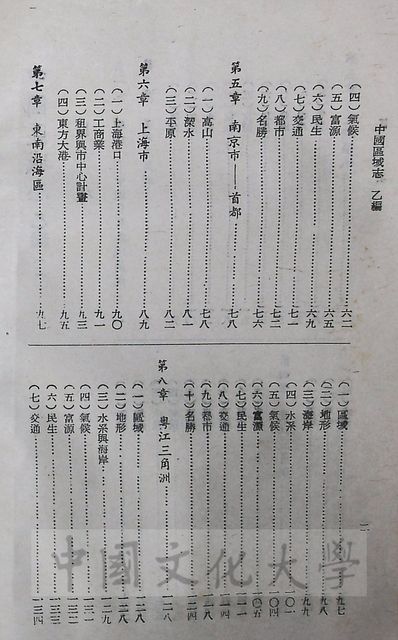 中國區域志 乙編
(四)氣候……六二
(五)富源……六五
(六)民生……六九
(七)交通……七一
(八)都市……七二
(九)名勝……七六
第五章 南京市——首都……七八
(一)高山……七八
(二)深水……八一
(三)平原……八二
第六章 上海市……八九
(一)上海港口……九〇
(二)工商業……九一
(三)租界與市中心計畫……九三
(四)東方大港……九五
第七章 東南沿海區……九七
(一)區域……九七
(二)地形……九八
(三)海岸……九九
(四)水系……一〇一
(五)氣候……一〇四
(六)富源……一〇五
(七)民生……一一一
(八)交通……一一四
(九)都市……一一八
(十)名勝……一二四
第八章 粵江三角洲……一二八
(一)區域……一二八
(二)地形……一二八
(三)水系與海岸……一二九
(四)氣候……一三一
(五)富源……一三二
(六)民生……一三三
(七)交通……一三四
二
中國文化大學